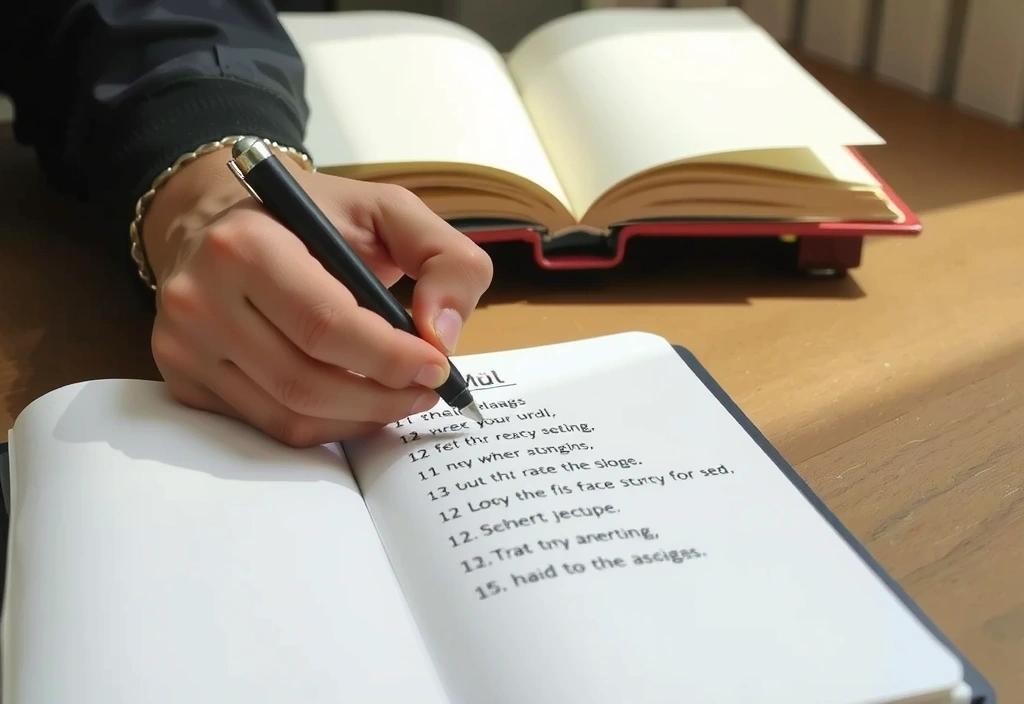 11 their
12 your urdl,
12 fet thr reacy seting,
11 nry wher
13 uut tht rate the slogs.
12 Locy the fis face for sed,
12. Sehert jecupe.
12. Trat tny anerting,
15. haid to the asciges.